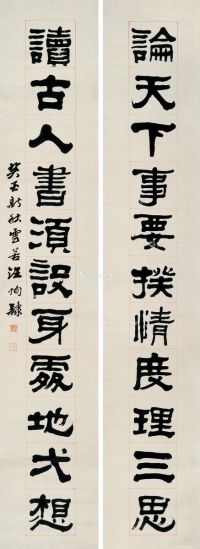 論天下事要揆情度理三思
讀古人書須設身處地弌想
癸丑新秋雲若汪恂隸